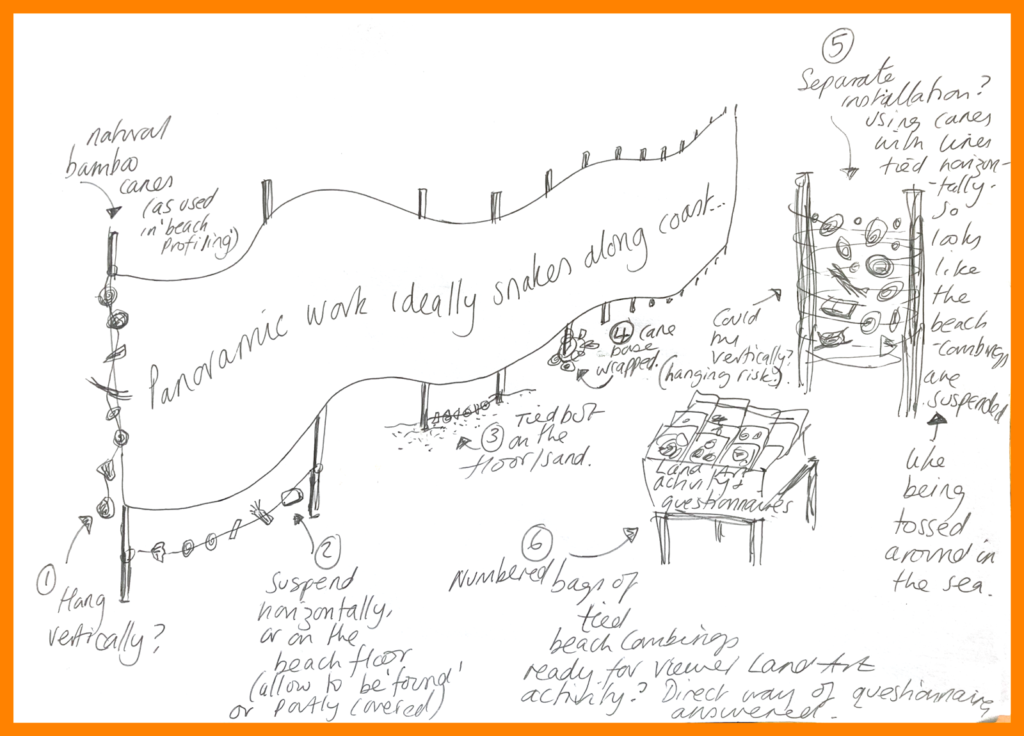 natural
bamboo
canes
(as used
in 'beach
profiling')
Panoramic work ideally snakes along coast...
① Hang
vertically?
② Suspend
horizontally,
or on the
beach floor
(allow to be 'found'
or partly covered)
③ Tied but
on the
floor/sand.
④ cane
base
wrapped.
⑤
Separate
installation?
using canes
with lines
tied horizon-
-tally -
so
looks
like
the
beach
-combings
are
suspended
like
being
tossed
around in
the sea.
Could
try
vertically?
(hanging risk?)
Land Art
activity +
questionnaires
⑥
Numbered bags of
tied
beach combings
ready for viewer Land Art
activity? Direct way of questionnaire
answered.